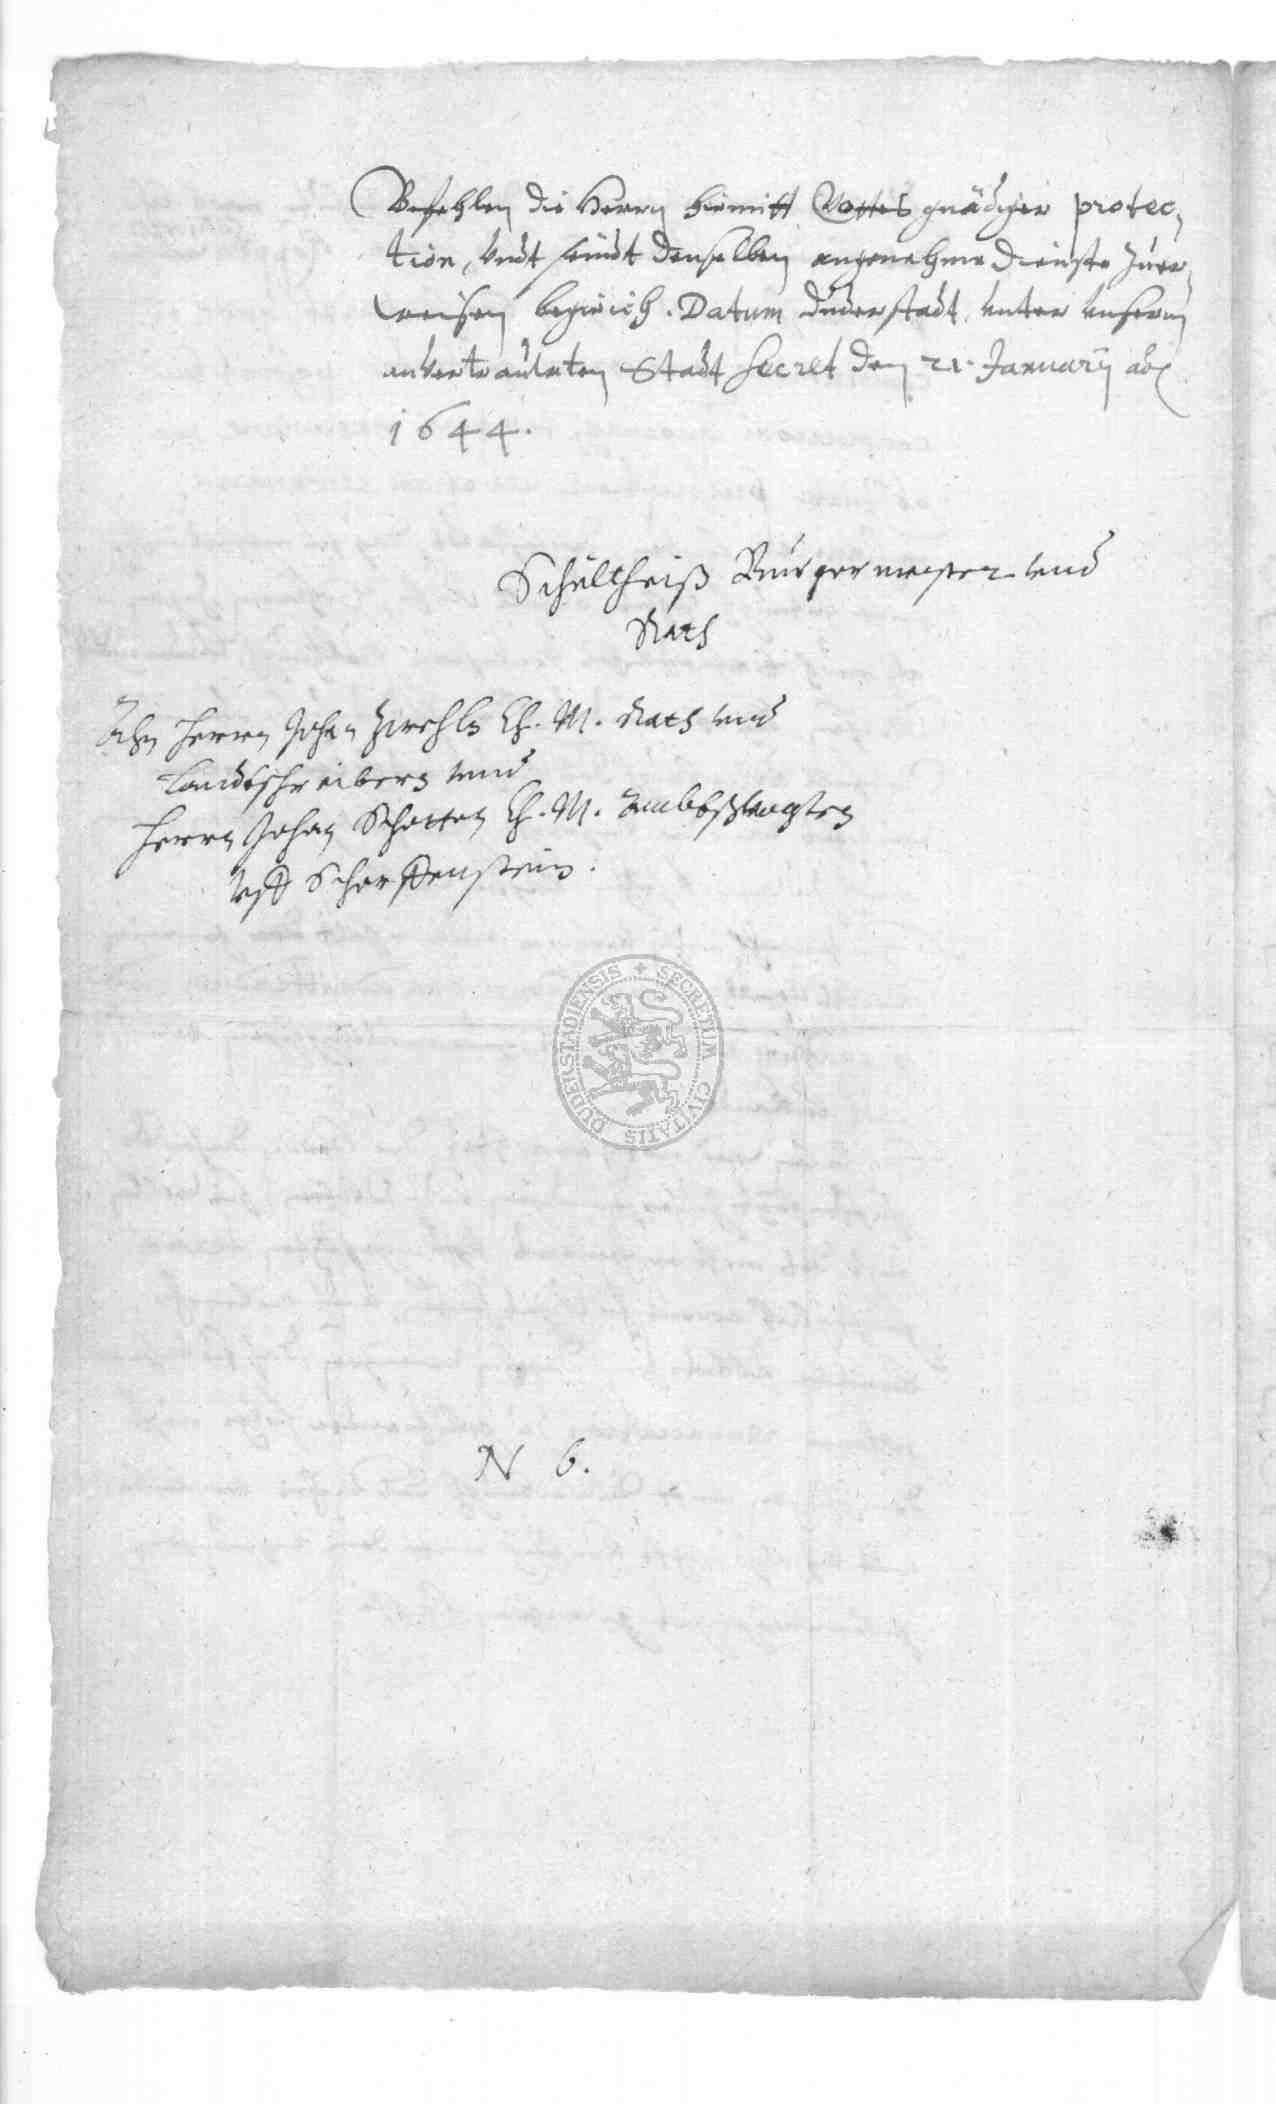 Befehlen die Herrn hiermitt Gottes gnädiger protec,
tion, Undt seindt denselben angenehme dienste zuer,
weisen begierich. Datum Duderstadt, unter unserm
anvertrauleten Stadt Secret den 21. Januarÿ ao
1644.
Schultheiß Bürgermeister und
Rath
Ahn Herrn Johan Ch. M. Rath und
Landtschreibern und
Herrn Johan Schotten Ch. M. Ambtsvogten
Uff Scharffenstein.
SECRETUM CIVITATIS DUDERSTADIENSIS
N 6.